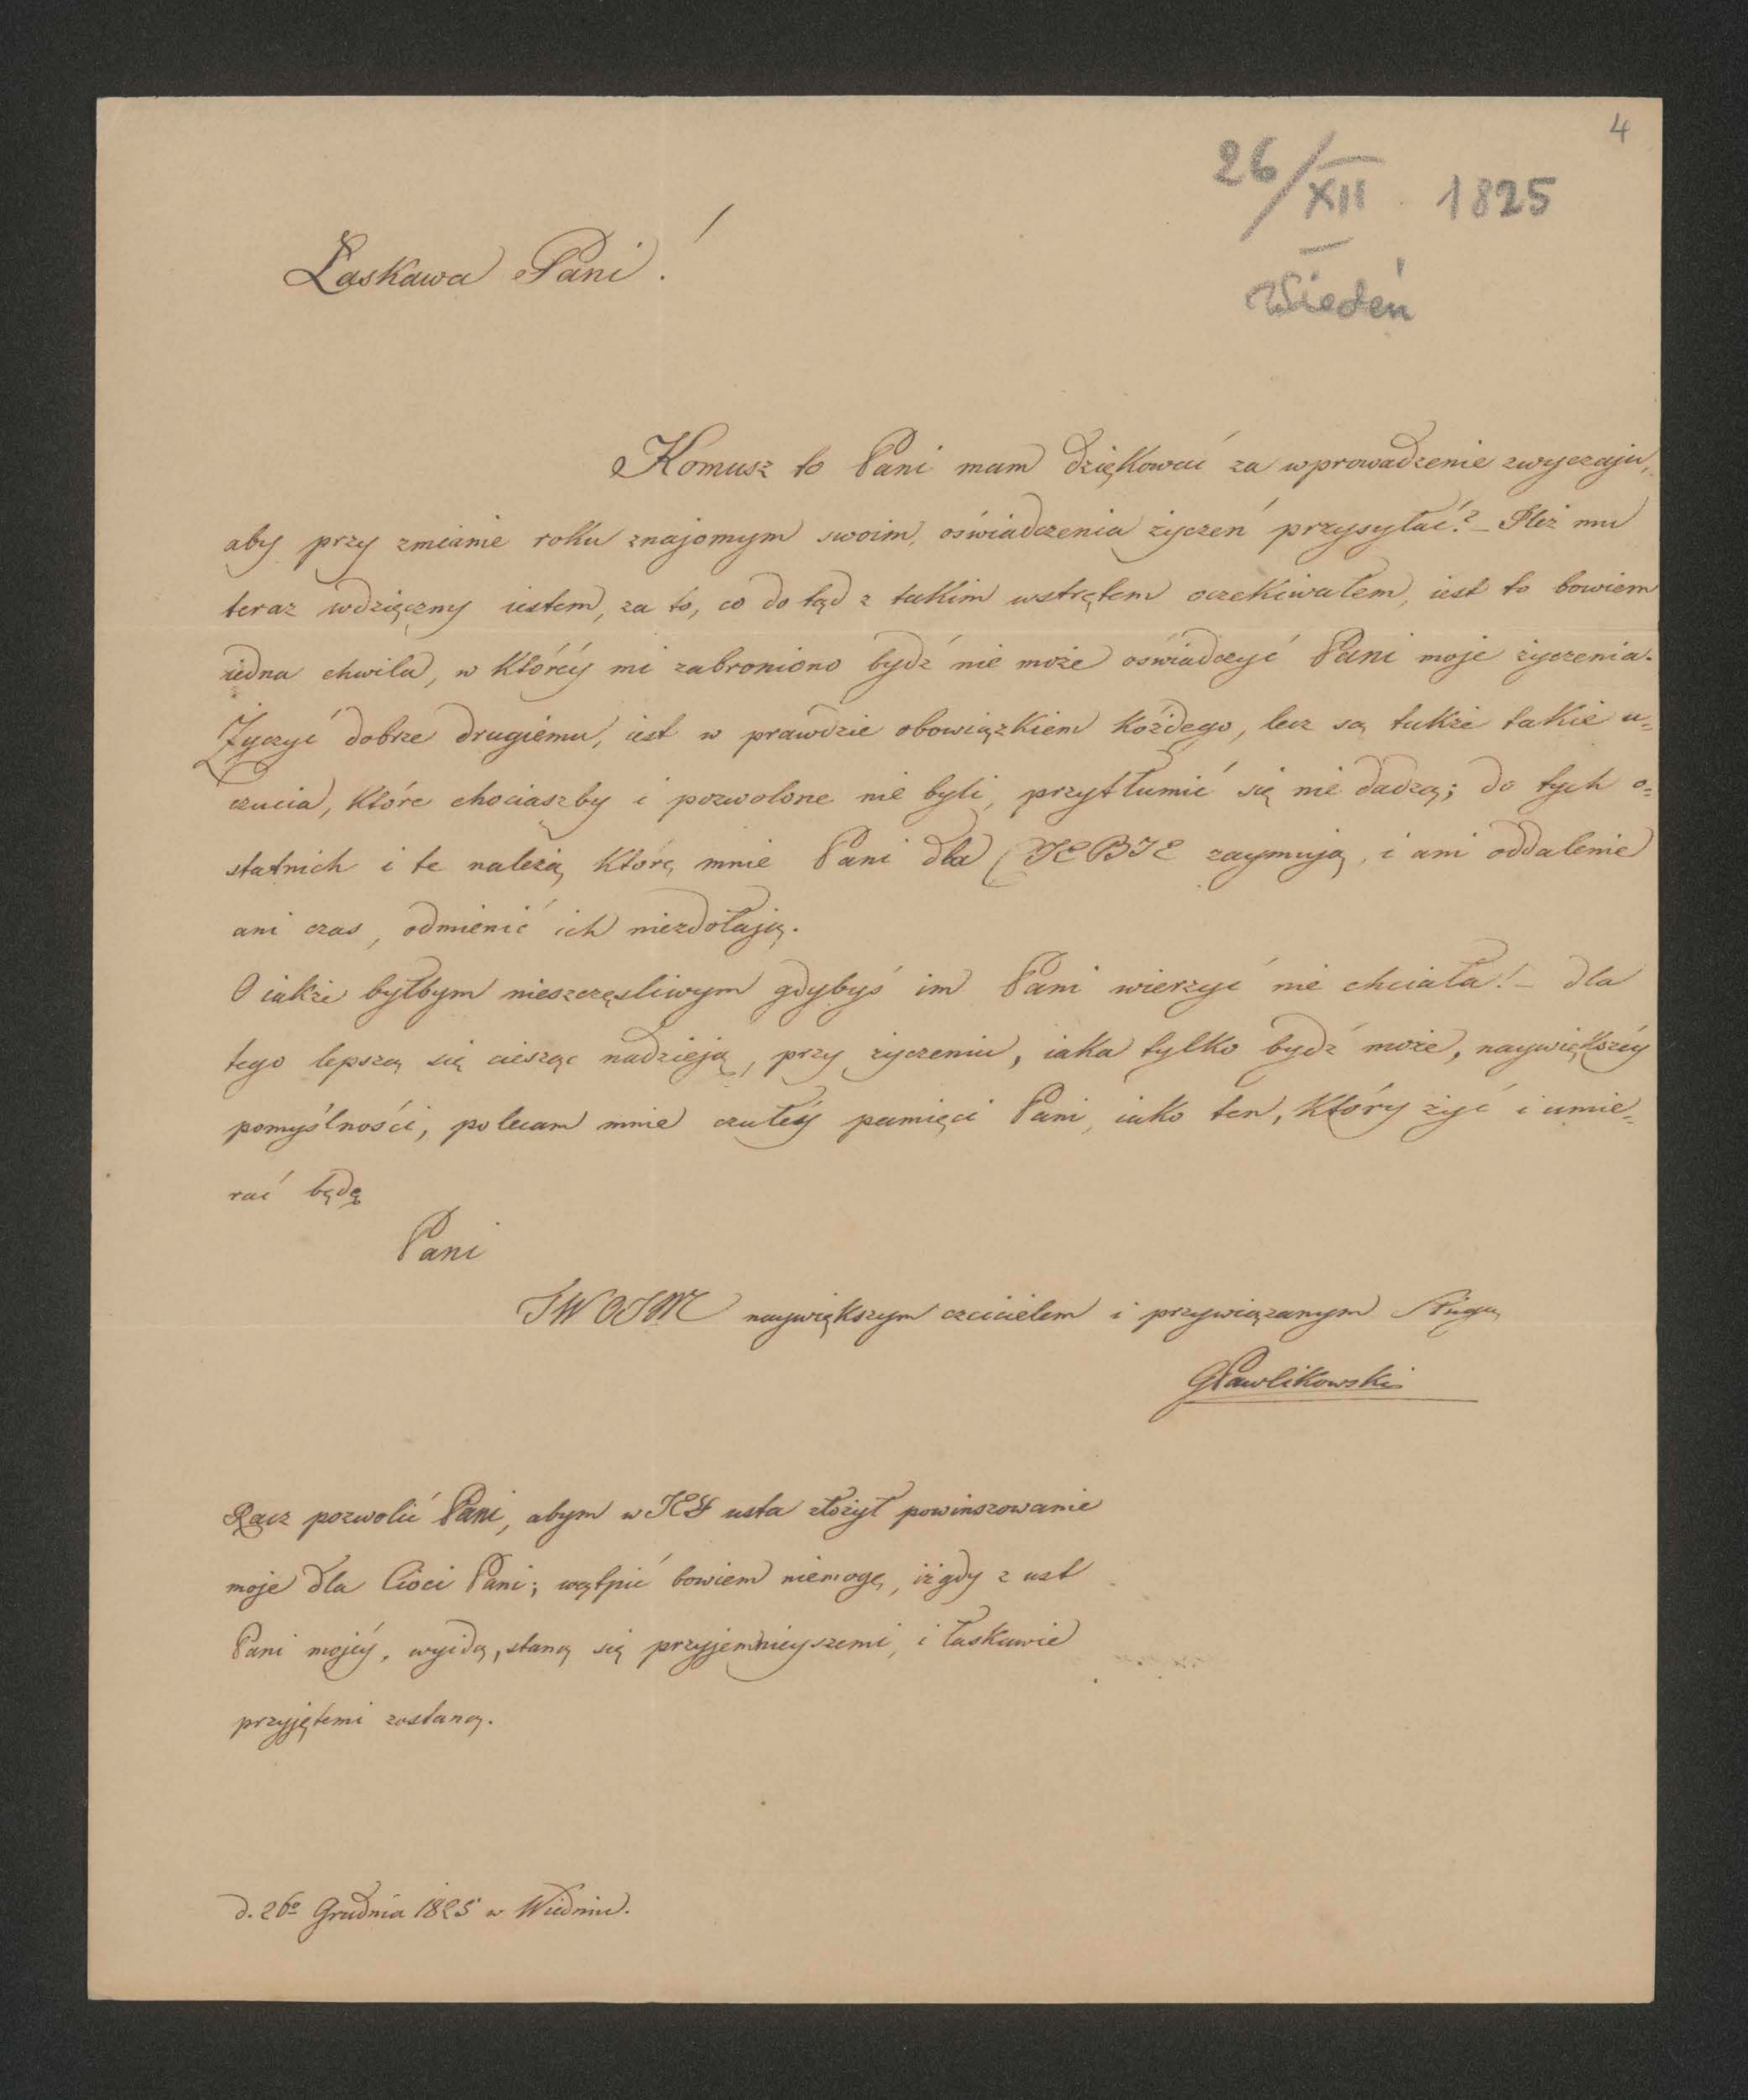 4
26/XII 1825
Wiedeń
Łaskawa Pani!
Komusz to Pani mam dziękować za wprowadzenie zwyczaju,
aby przy zmianie roku znajomym swoim, oświadczenia życzeń przysyłać? - Ileż mu
teraz wdzięczny iestem, za to, co do tąd z takim wstrętem oczekiwałem, iest to bowiem
iedna chwila, w któréy mi zabroniono bydź nie może oświadczyć Pani moje życzenia.
Życzyć dobrze drugiému, iest w prawdzie obowiązkiem każdego, lecz są także takie u=
czucia, które chociaszby i pozwolone nie byli, przytłumić się nie dadzą; do tych o=
statnich i te należą, które mnie Pani dla CIEBIE zaymują, i ani oddalenie
ani czas, odmienić ich niezdołają.
O iakże byłbym nieszczęsliwym gdybyś im Pani wierzyć nie chciała! - dla
tego lepszą się ciesząc nadzieją, przy życzeniu, iaka tylko bydź może, naywiększéy
pomyślności, polecam mnie czułéy pamięci Pani, iako ten, który żyć i umie=
rać będę
Pani
TWOIM naywiększym czcicielem i przywiązanym Sługą
GPawlikowski
Racz pozwolić Pani, abym w JEY usta złożył powinszowanie
moje dla Cioci Pani; wątpić bowiem niemogę, iż gdy z ust
Pani mojéy, wyidą, staną się przyjemnieyszemi, i łaskawie
przyjętemi zostaną.
d. 26º Grudnia 1825 w Wiedniu.